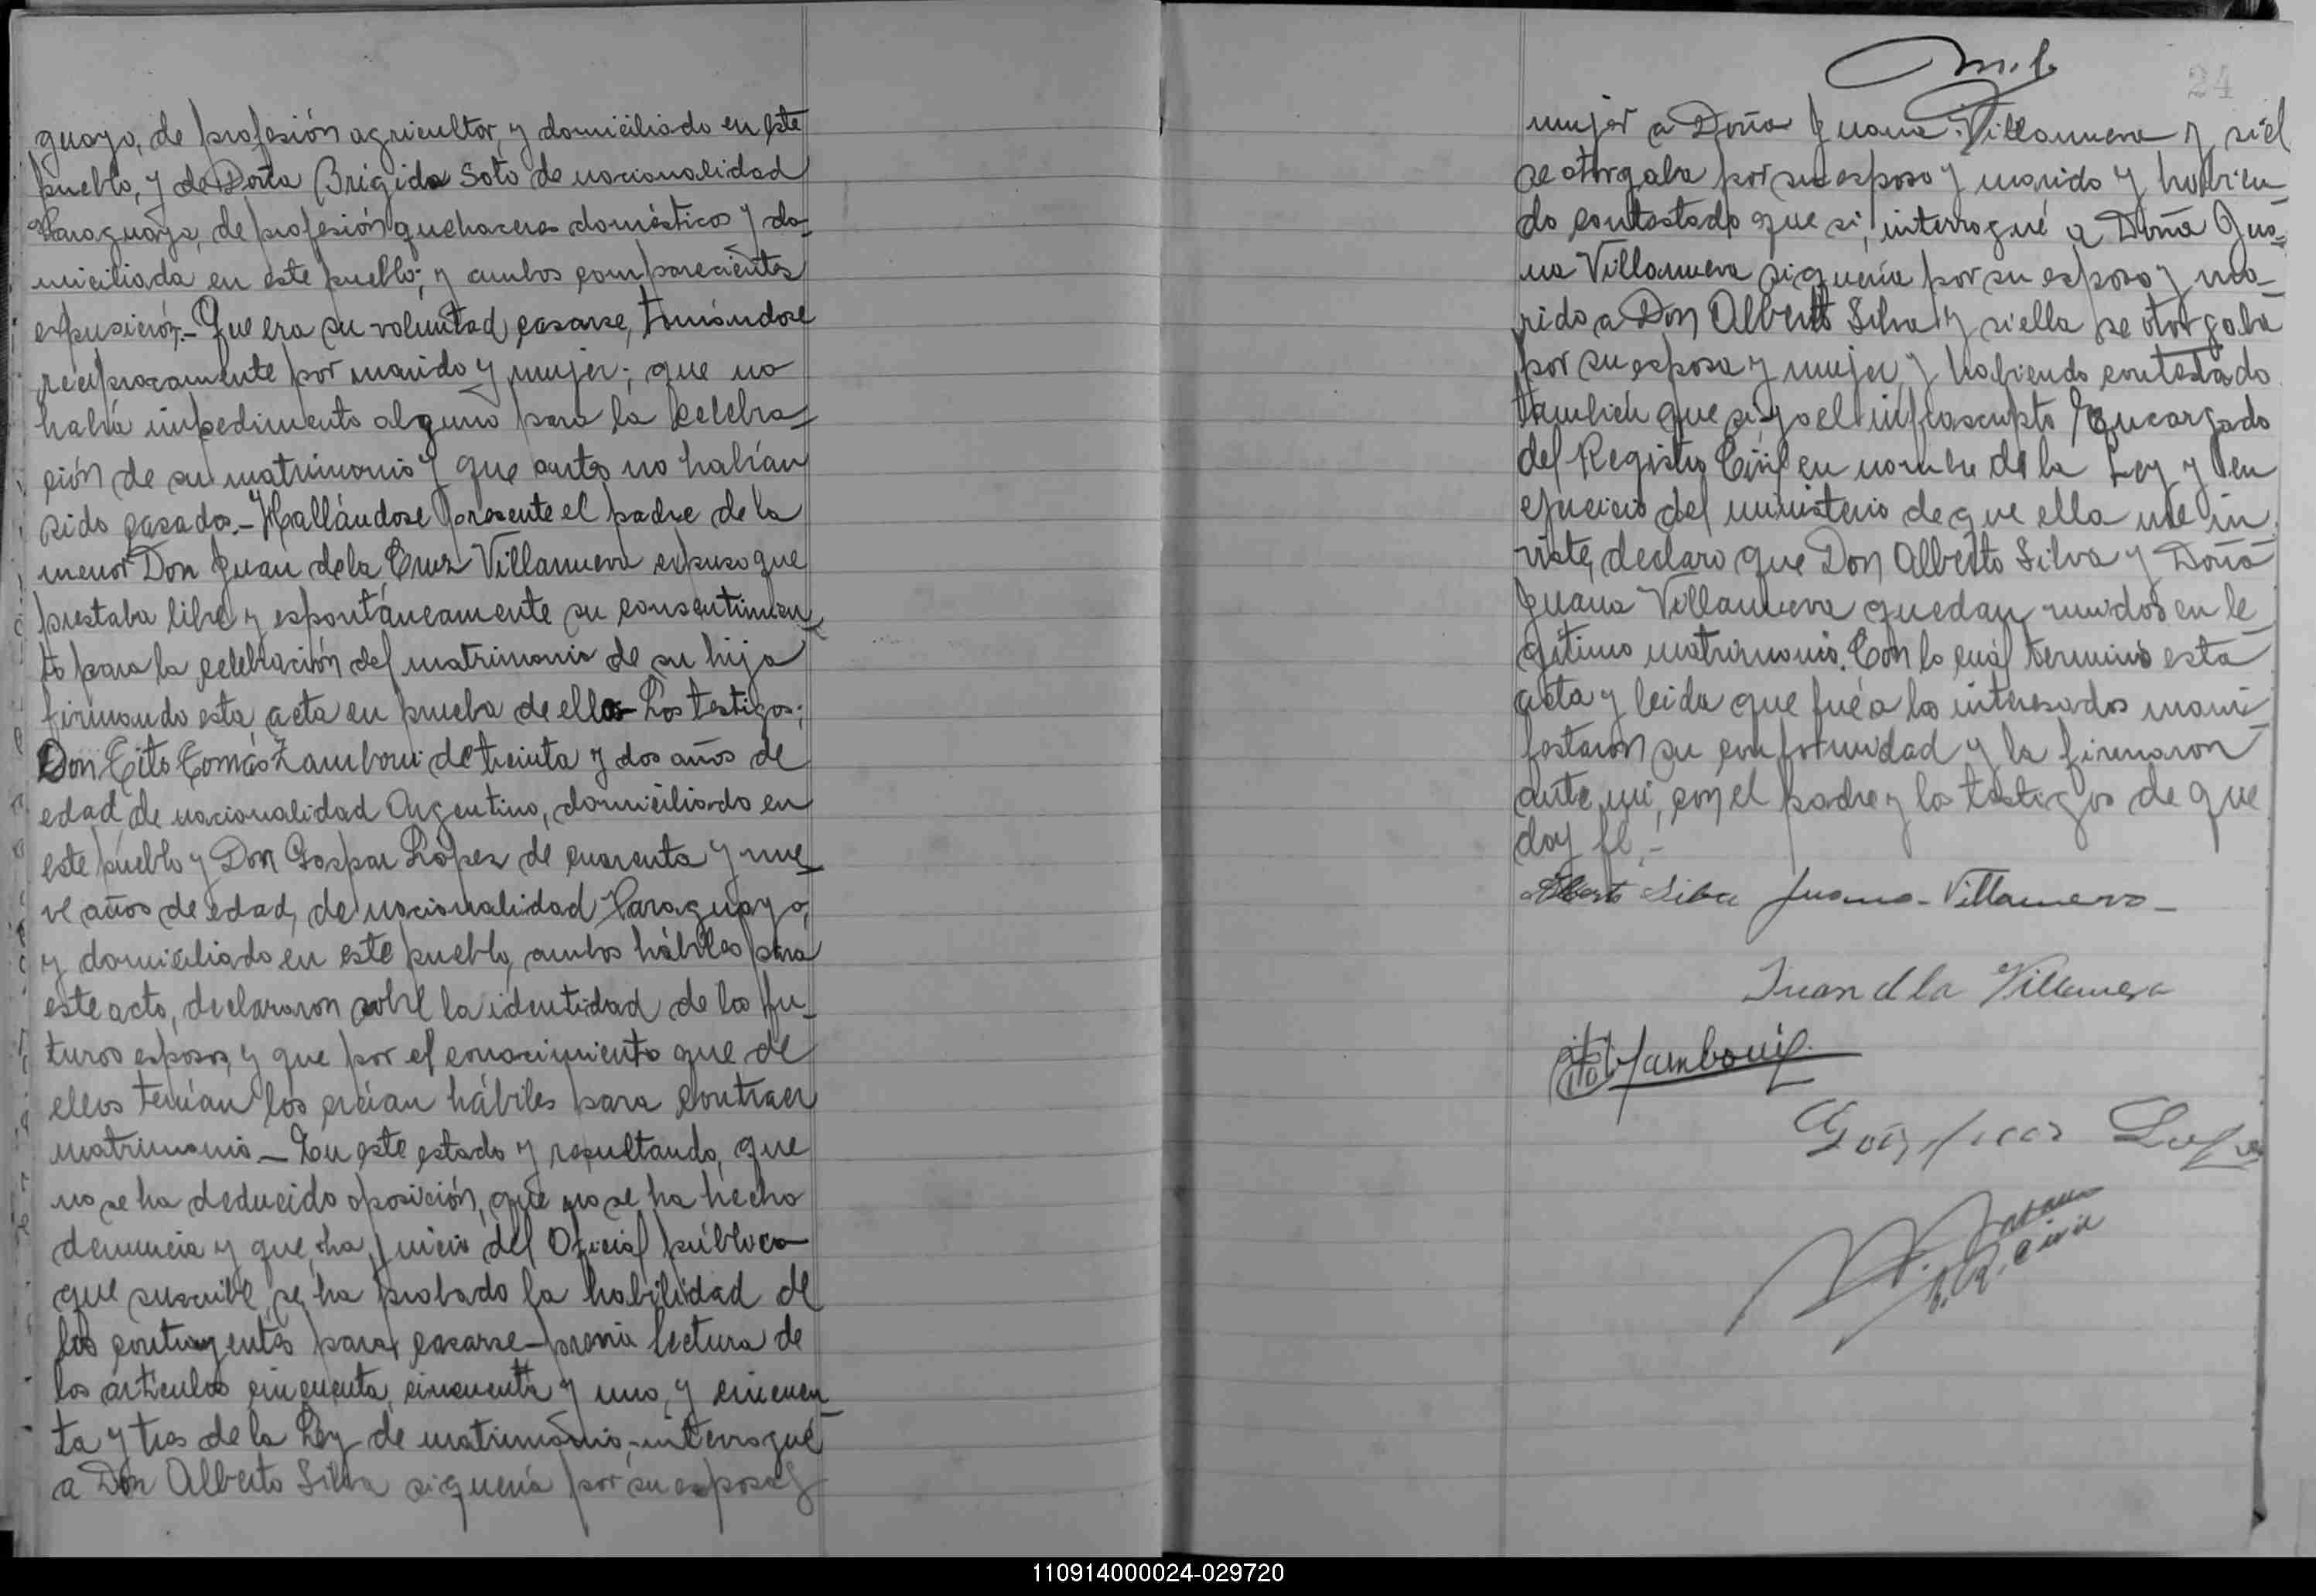 guayo, de profesión agricultor, y domiciliado en este
pueblo, y de Doña Brigida Soto de nacionalidad
Paraguaya, de profesión quehaceres domésticos y do-
miciliada en este pueblo; y ambos comparecientes
expusieron.- Que era su voluntad casarse, tomándose
reciprocamente por marido y mujer; que no
había impedimento alguno para la celebra-
ción de su matrimonio y que antes no habían
sido casados.- Hallándose presente el padre de la
menor Don Juan de la Cruz Villanueva expuso que
prestaba libre y espontáneamente su consentimien-
to para la celebración del matrimonio de su hija
firmando esta acta en prueba de ello- Los testigos;
Don Tito Tomás Zamboni de treinta y dos años de
edad, de nacionalidad Argentino, domiciliado en
este pueblo y Don Gaspar López de cuarenta y nue-
ve años de edad, de nacionalidad Paraguayo,
y domiciliado en este pueblo, ambos hábiles para
este acto, declararon sobre la identidad de los fu-
turos esposos, y que por el conocimiento que de
ellos tenían los creían hábiles para contraer
matrimonio.- En este estado y resultando, que
no se ha deducido oposición, que no se ha hecho
denuncia y que, ha juicio del Oficial público
que suscribe, se ha probado la habilidad de
los contrayentes para casarse- previa lectura de
los artículos cincuenta, cincuenta y uno, y cincuen-
ta y tres de la Ley de matrimonio,- interrogué
a Don Alberto Silva si quería por su esposa y
24
mujer a Doña Juana Villanueva y si él
se otorgaba por su esposo y marido y habien-
do contestado que si, interrogué a Doña Jua-
na Villanueva si quería por su esposo y ma-
rido a Don Alberto Silva y si ella se otorgaba
por su esposa y mujer, y habiendo contestado
también que si, yo el infrascripto Encargado
del Registro Civil en nombre de la Ley y en
ejercicio del ministerio de que ella me in-
viste, declaro que Don Alberto Silva y Doña
Juana Villanueva quedan unidos en le-
gítimo matrimonio. Con lo cuál terminó esta
acta y leida que fué a los interesados mani-
festaron su conformidad y la firmaron
ante mi, con el padre y los testigos de que
doy fé.-
Alberto Silva Juana Villanueva
Juan d la Villanueva
Tito T Zamboni
Gaspar Lopez
110914000024-029720